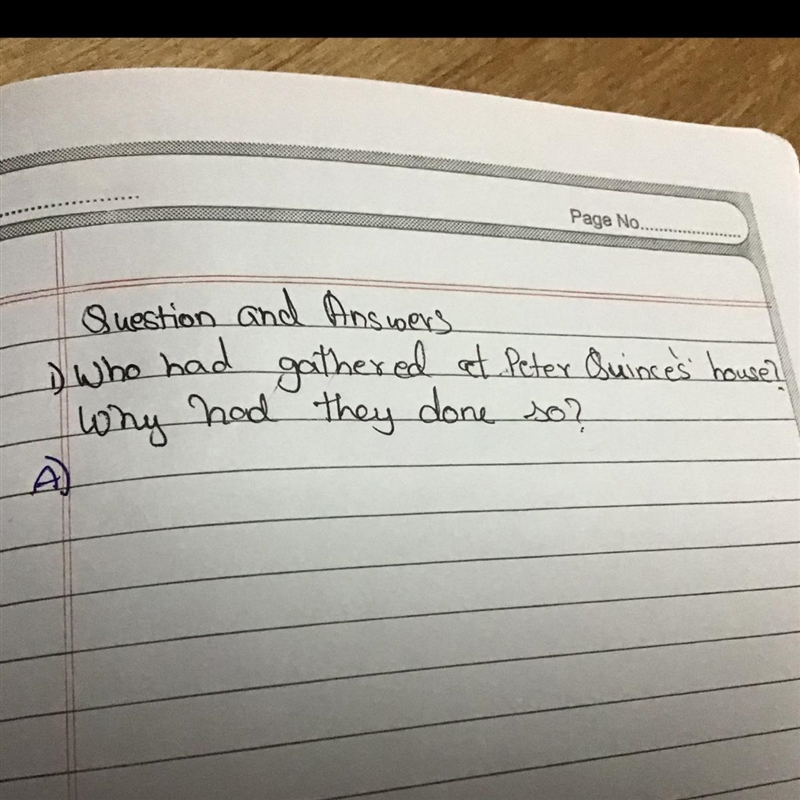 Page No...........................
Question and Answers
1) Who had gathered at Peter Quince's house?
Why had they done so?
A)